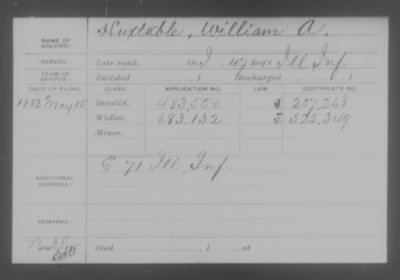 NAME OF SOLDIER: Huxtable, William A.
SERVICE: Late rank, Co. I, 47 Reg't Ill Inf.
TERM OF SERVICE: Enlisted , 1 Discharged , 1
DATE OF FILING. CLASS. APPLICATION NO. LAW. CERTIFICATE NO.
1883 May 15 Invalid, 483,556 J 257,258
Widow, 683,132 J 525,349
Minor,
ADDITIONAL SERVICES: E 71 Ill. Inf.
REMARKS:
Died , 1 , at